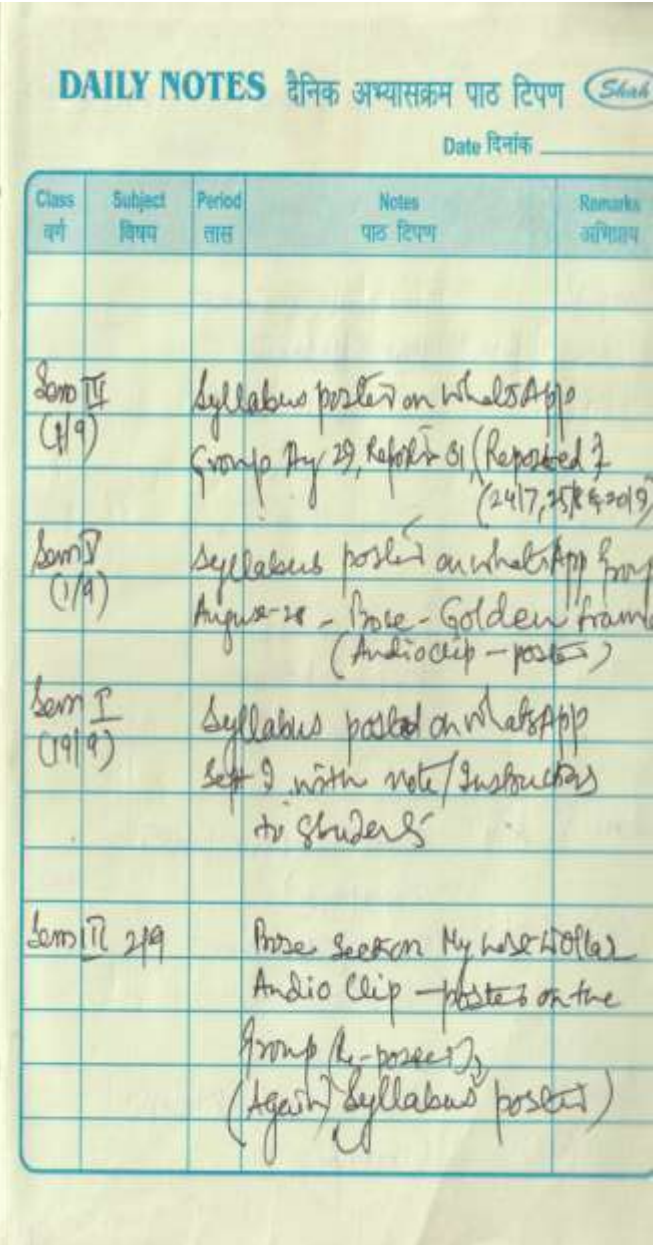 DAILY NOTES दैनिक अभ्यासक्रम पाठ टिपण Shah
Date दिनांक
Class Subject Period Notes Remarks
वर्ग विषय तास पाठ टिपण अभिप्राय
Sem III Syllabus posted on WhatsApp
(1/9) Group 29, (Reposted
(24/7,
Sem V Syllabus posted on WhatsApp Group
(1/9) August-28 - Prose - Golden frame
(Audio clip - posted)
Sem I Syllabus posted on WhatsApp
(19/9) Sept 9 with note/Instructions
to students
Sem III 2/9 Prose Section My
Audio Clip - posted on the
group (Re-posted),
(Again) Syllabus posted)